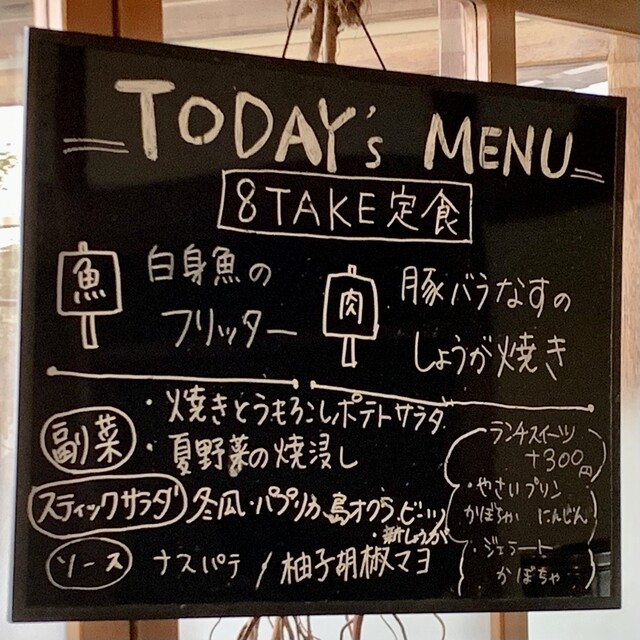 TODAY's MENU
8TAKE定食
魚
白身魚の
フリッター
肉
豚バラなすの
しょうが焼き
副菜
・焼きとうもろこしポテトサラダ
・夏野菜の焼浸し
スティックサラダ
冬瓜・パプリカ 島オクラ
・新しょうが
ソース
ナスパテ / 柚子胡椒マヨ
ランチスイーツ
+300円
・やさいプリン
かぼちゃ にんじん
・ジェラート
かぼちゃ